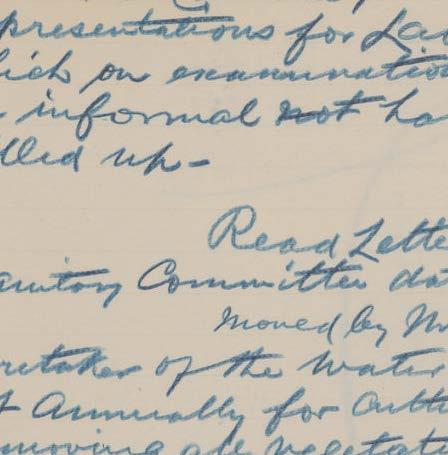 presentations for La
hich on examinatio
informal not ha
lled up-
Read Lette
anitory Committee da
Moved by M
retaker of the Water
t Annually for Cutt
moving all vegetat